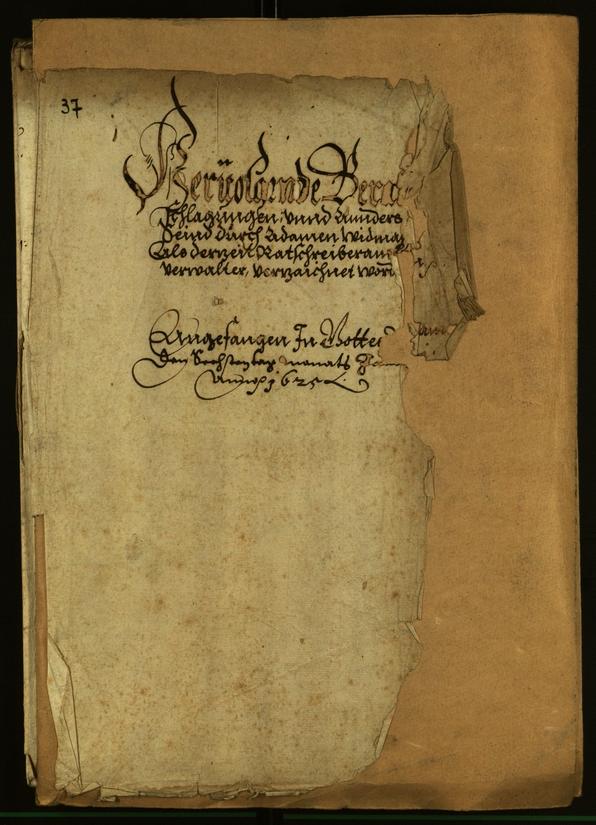 37
Heruolgende Bera
schlagungen, vnnd Annders
seind durch Adamen Widma
Als derzeit Ratschreiberam
verwalter, verzaichnet word
Angefangen In Gottes
Den Sechsten tag monats
Anno 1625